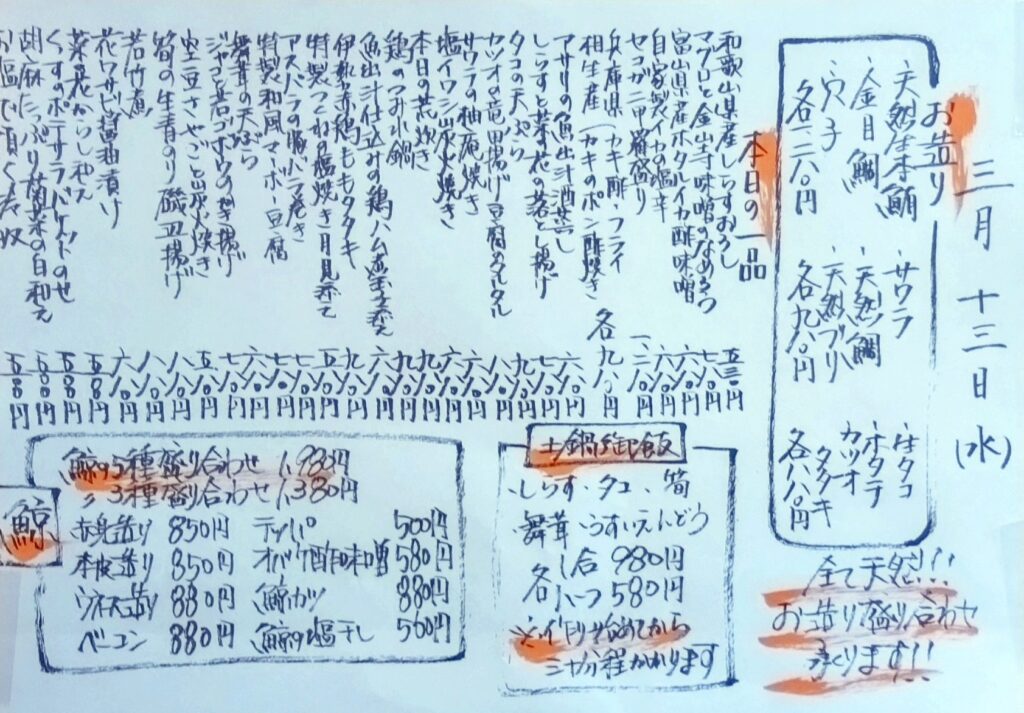 三月十三日(水)
お造り
・天然生本鮪
・金目鯛
・穴子
各一二八〇円
・サワラ
・天然鯛
・天然ブリ
各九八〇円
・生タコ
・ホタテ
カツオ
タタキ
各八八〇円
全て天然!!!
お造り盛り合わせ
承ります!!
本日の一品
和歌山県産しらすおろし 五三〇円
マグロと金山寺味噌のなめろう 七八〇円
富山県産ホタルイカ酢味噌 六八〇円
自家製イカの塩辛 六八〇円
セコガニ甲羅盛り
兵庫県 (カキ酢・フライ
相生産 (カキのポン酢焼き 各九八〇円
アサリの魚出汁酒蒸し 六八〇円
しらすと菜の花の落とし揚げ
タコの天ぷら
カツオの竜田揚げ豆腐のタルタル
サワラの柚庵焼き
塩イワシ炭火焼き
本日の荒炊き
鶏のつみれ小鍋
魚出汁仕込みの鶏ハム温玉子添え
伊勢赤鶏ももタタキ
特製つくねの塩焼き月見添え
アスパラの豚バラ巻き
特製和風マーボー豆腐
舞茸の天ぷら
ジャコ若ゴボウのかき揚げ
空豆さやごと炭火焼き
筍の生青のり磯辺揚げ
若竹煮
花ワサビ醤油漬け
菜花からし和え
くずのポテサラバケットのせ
胡麻たっぷり菊菜の白和え
お塩で頂く冷奴
土鍋御飯
・しらす・タコ・筍
舞茸・うすいえんどう
各 一合 980円
小一つ 580円
※作り始めてから
三十分程かかります
鯨
鯨の5種盛り合わせ 1,980円
〃3種盛り合わせ 1,380円
赤身造り 850円 テッパ 500円
本皮造り 850円 オバケ酢味噌 580円
ウネス造り 880円 鯨カツ 880円
ベーコン 880円 鯨の塩干し 500円